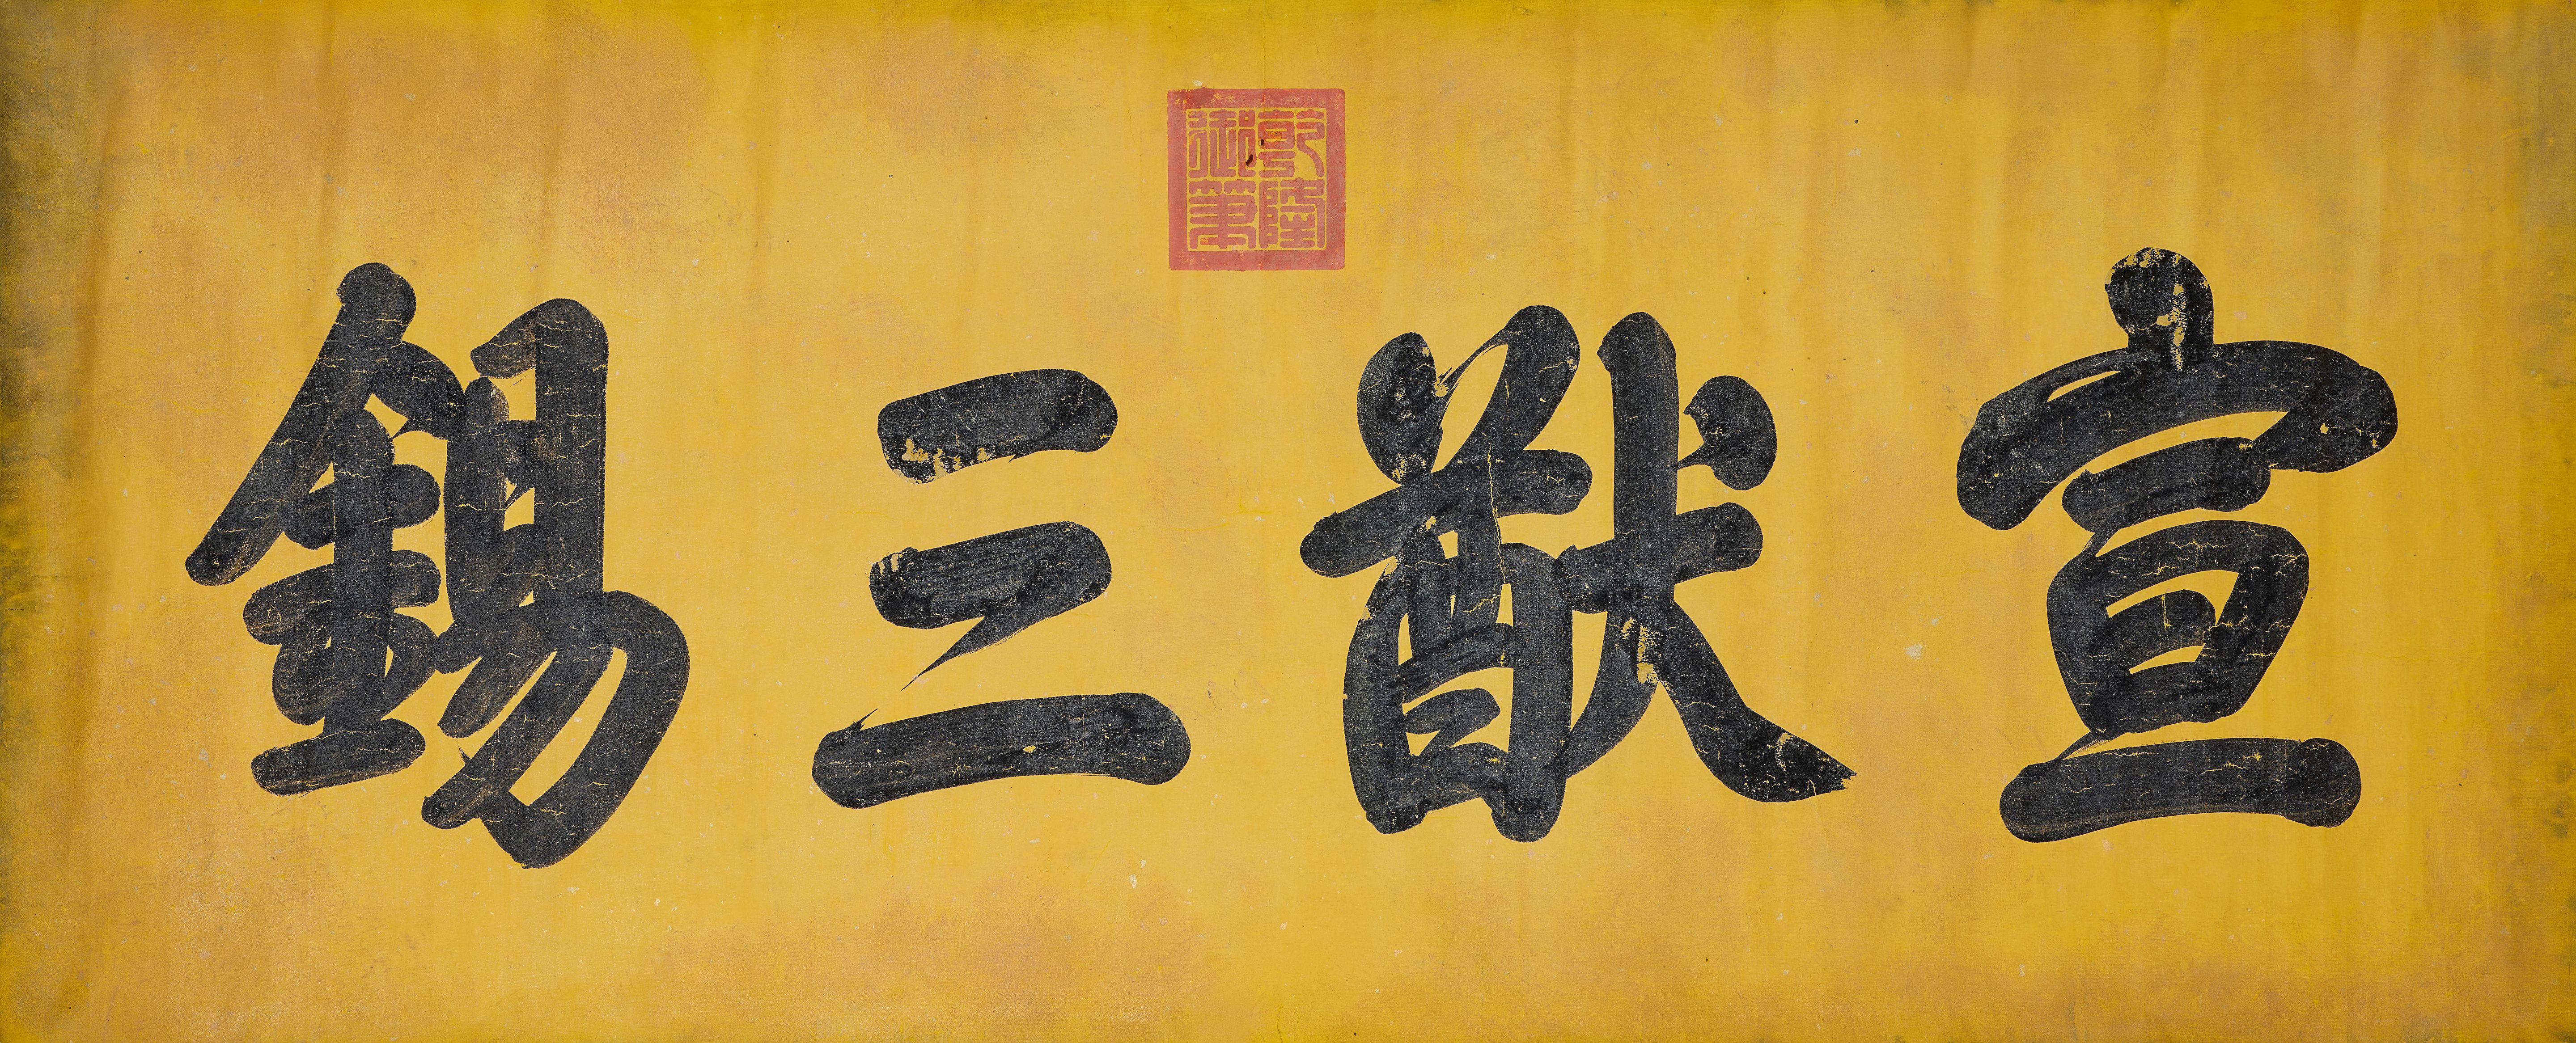 宣猷三錫
乾隆
御筆